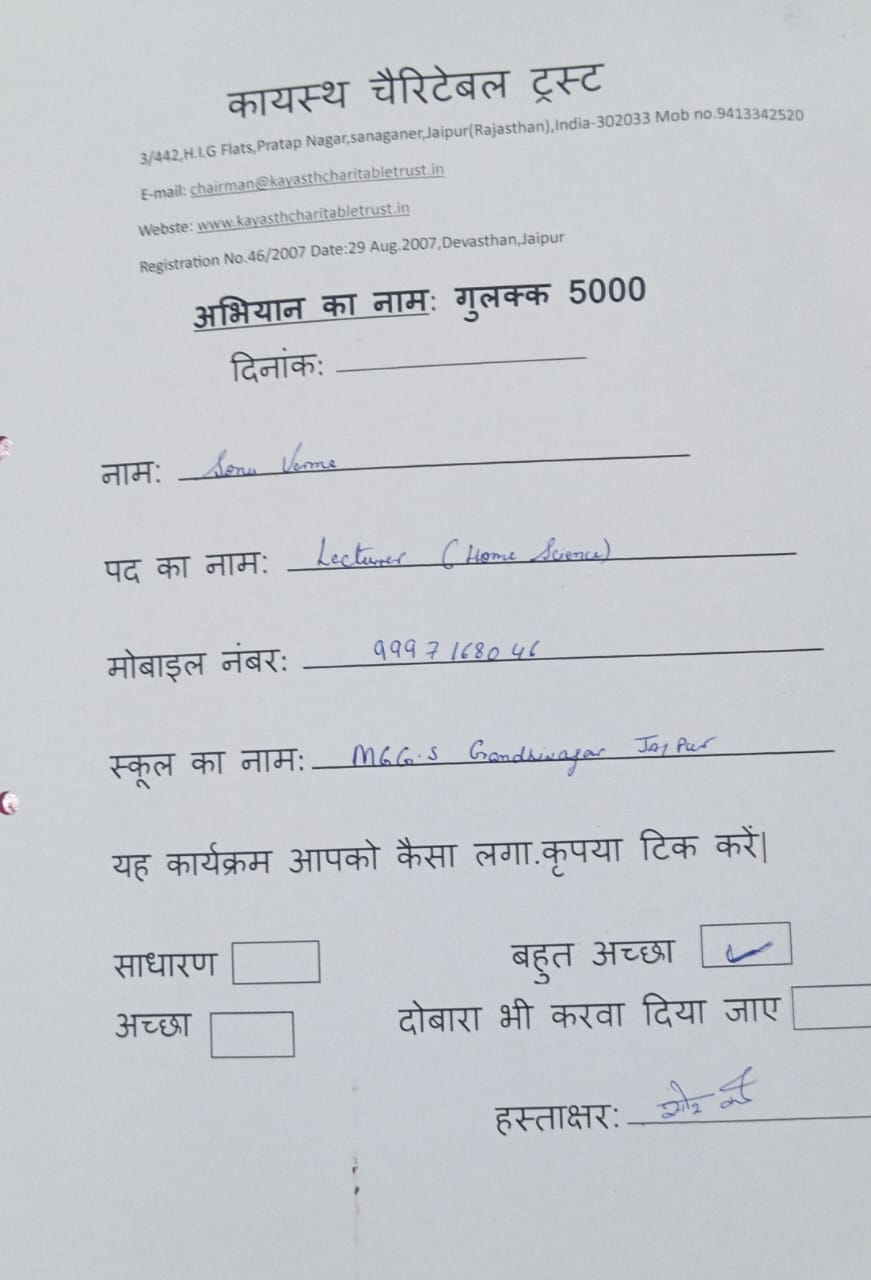 कायस्थ चैरिटेबल ट्रस्ट
3/442,H.I.G Flats,Pratap Nagar,sanaganer,Jaipur(Rajasthan),India-302033 Mob no.9413342520
E-mail: chairman@kayasthcharitabletrust.in
Webste: www.kayasthcharitabletrust.in
Registration No.46/2007 Date:29 Aug.2007,Devasthan,Jaipur
अभियान का नाम: गुलक्क 5000
दिनांक:
नाम: Sonu Verma
पद का नाम: Lecturer (Home Science)
मोबाइल नंबर: 9997168046
स्कूल का नाम: MGG.S Gandhinagar Jaipur
यह कार्यक्रम आपको कैसा लगा.कृपया टिक करें|
साधारण बहुत अच्छा ✓
अच्छा दोबारा भी करवा दिया जाए
हस्ताक्षर: